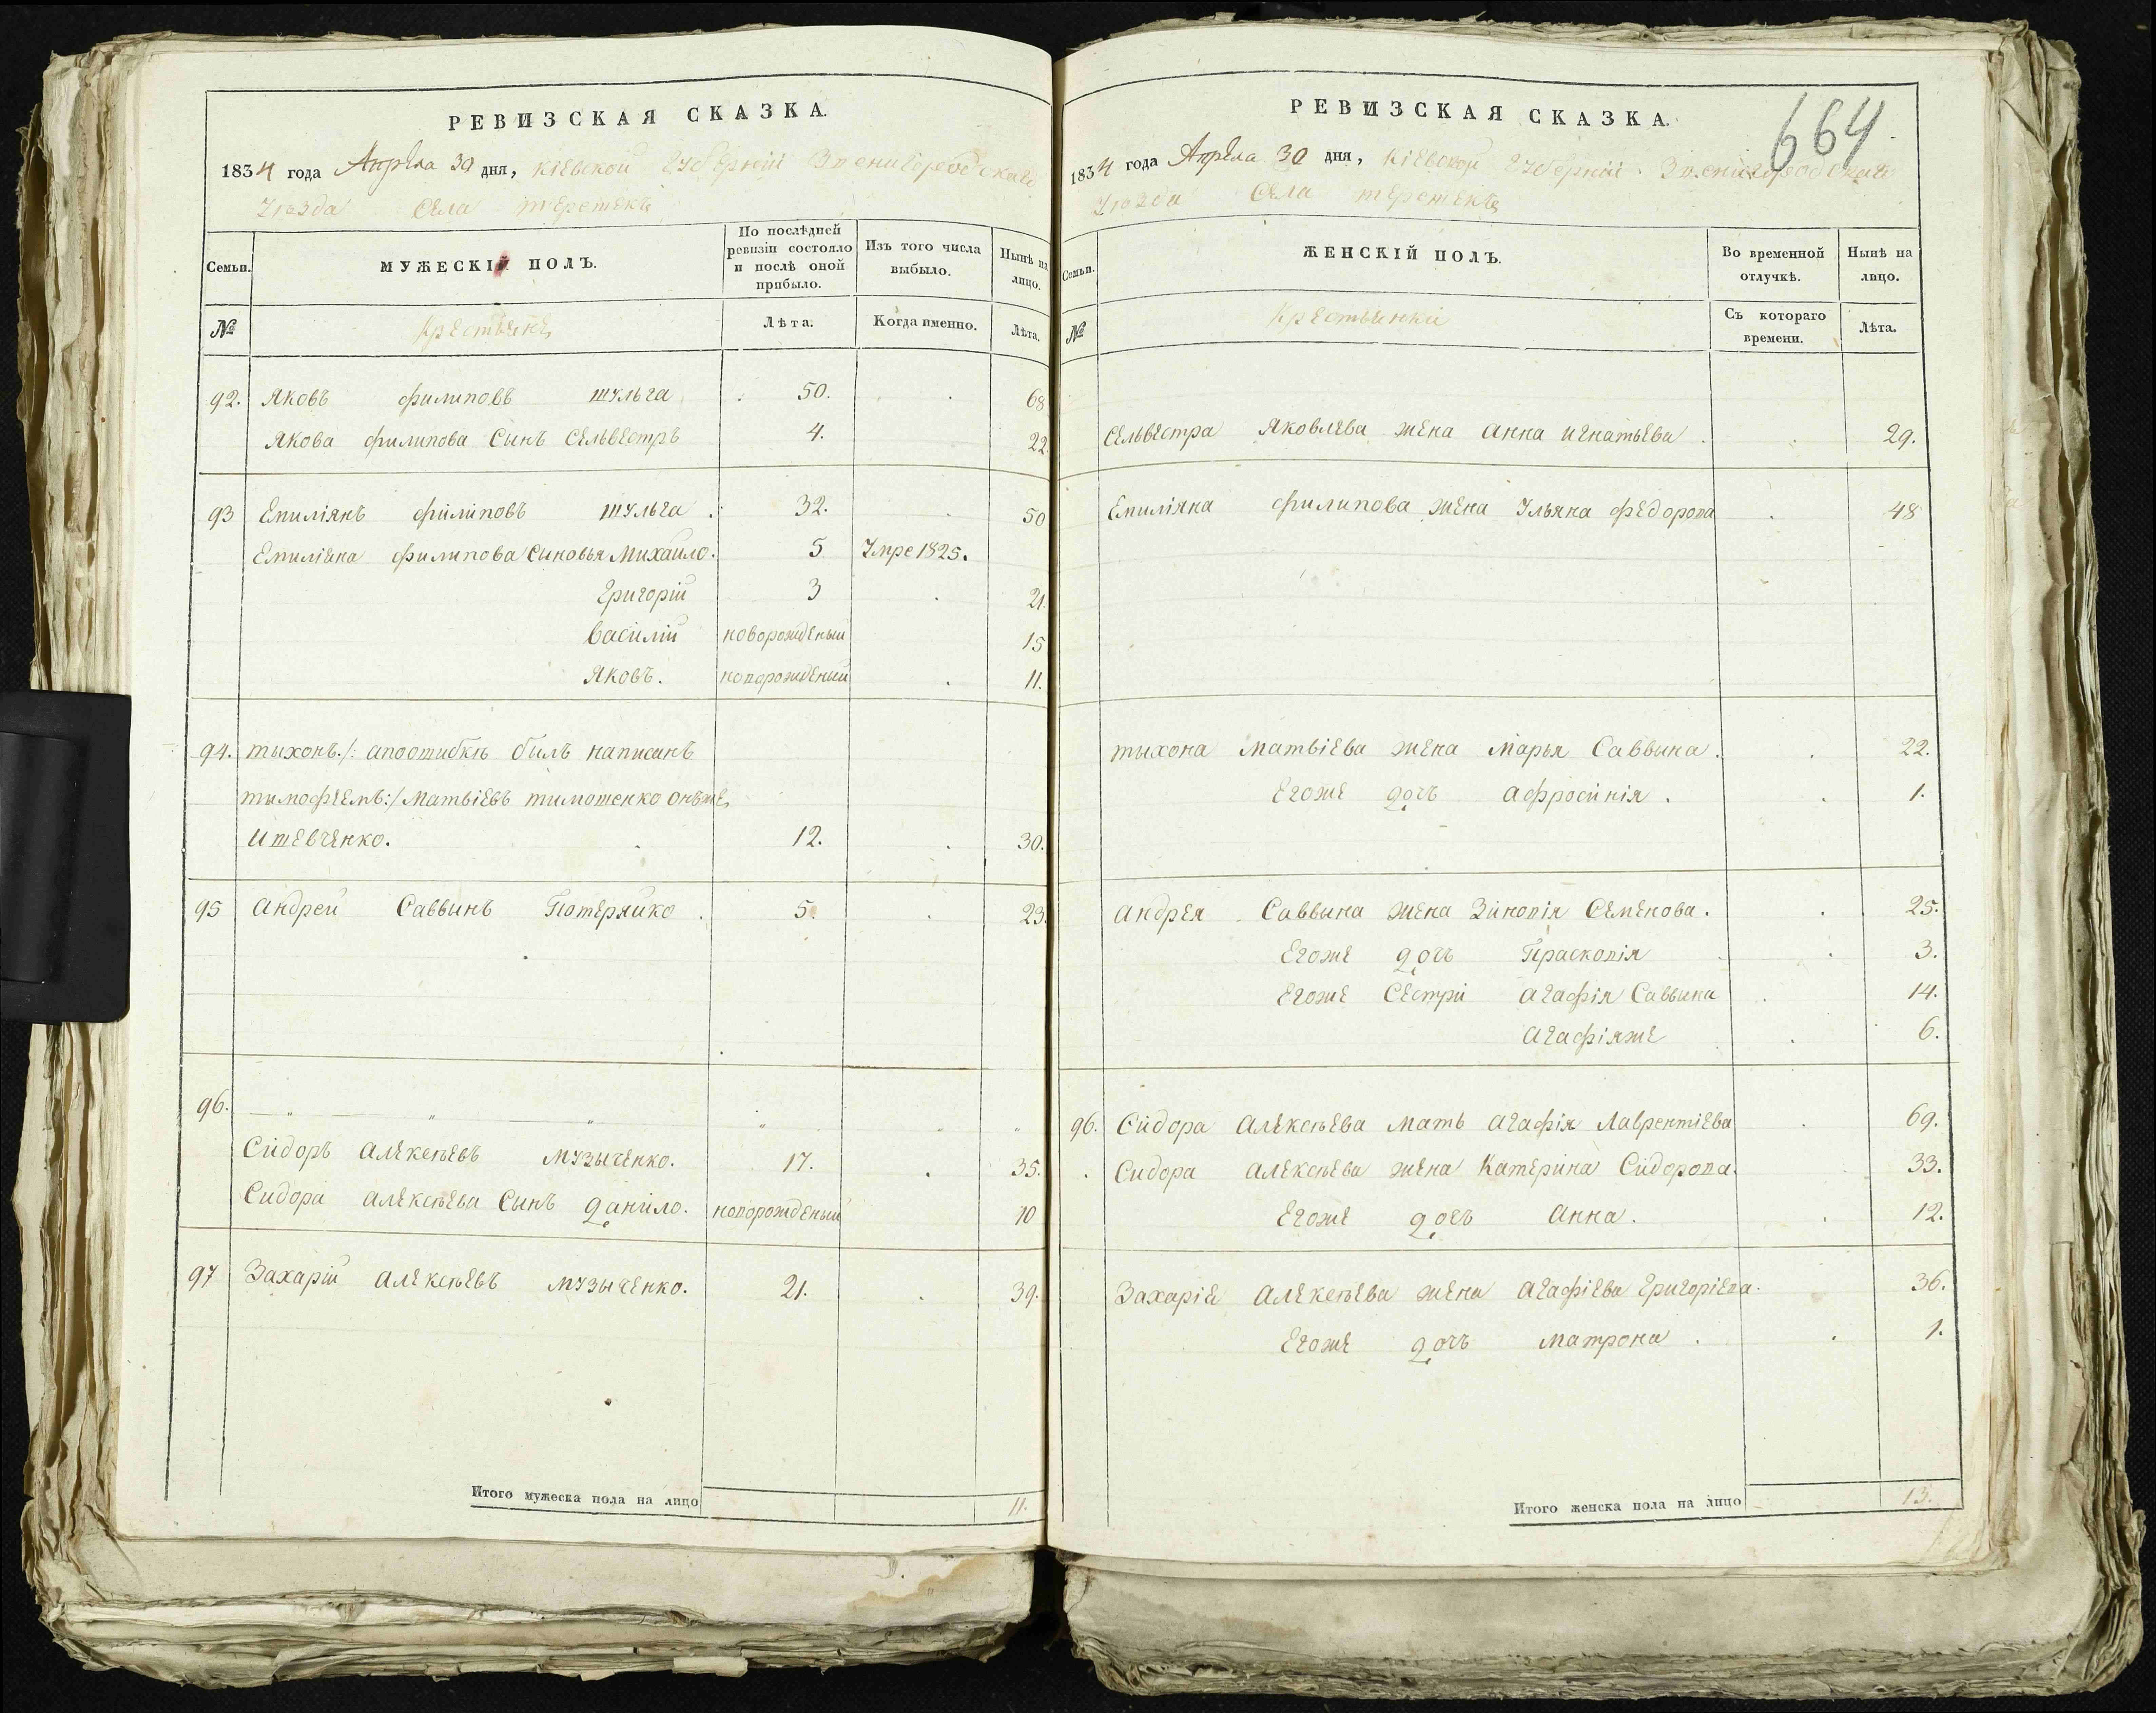 РЕВИЗСКАЯ СКАЗКА.
1834 года Апреля 30 дня, Кіевской Губерніи Звенигородскаго
Уезда Села Терешекъ
Семьи.
МУЖЕСКІЙ ПОЛЪ.
По послѣдней ревизіи состояло и послѣ оной прибыло.
Изъ того числа выбыло.
Нынѣ на лицо.
№
Крестьяне
Лѣта.
Когда именно.
Лѣта.
92. Яковъ филиповъ шульга 50. 68
Якова филипова Сынъ Сельвестръ 4. 22.
93 Емиліянъ филиповъ шульга 32. 50
Емиліяна филипова Сыновья Михайло. 5 Умре 1825.
Григорій 3 21.
Василій новорожденый 15
Яковъ. новорожденый 11.
94. тихонъ /: апоошибкѣ былъ написанъ
тимофѣемъ :/ Матвіевъ тимошенко онъже
Ишевченко. 12. 30.
95 Андрей Саввинъ Потеряйко 5. 23.
96. — „ — „ „ „ „ „
Сидоръ Алексѣевъ Музыченко. 17. 35.
Сидора Алексѣева Сынъ Данило. новорожденый 10
97 Захарій Алексѣевъ Музыченко. 21. 39.
Итого мужеска пола на лицо 11.
664
РЕВИЗСКАЯ СКАЗКА.
1834 года Апреля 30 дня, Кіевской Губерніи Звенигородскаго
Уезда Села Терешекъ
Семьи.
ЖЕНСКІЙ ПОЛЪ.
Во временной отлучкѣ.
Нынѣ на лицо.
№
Крестьянки
Съ котораго времени.
Лѣта.
Сельвестра Яковлева жена Анна Игнатьева 29.
Емиліяна филипова жена Ульяна федорова 48
тихона Матвіева жена Марья Саввина. 22.
Егоже дочь Афросинія. 1.
Андрея Саввина жена Зиновія Семенова. 25.
Егоже дочь Прасковія 3.
Егоже Сестри Агафія Саввина 14.
Агафіяже 6.
96. Сидора Алексѣева Мать Агафія Лаврентіева 69.
Сидора Алексѣева жена Катерина Сидорова. 33.
Егоже дочь Анна. 12.
Захаріе Алексѣева жена Агафіева Григоріева. 36.
Егоже дочь Матрона. 1.
Итого женска пола на лицо 13.